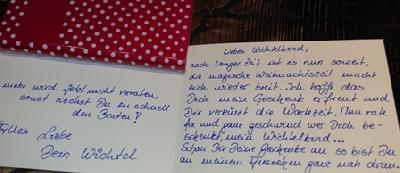 Liebes Wichtelkind,
nach langer Zeit ist es nun soweit,
da magische Weihnachtszeit macht
sich wieder breit. Ich hoffe das
Dich mein Geschenk erfreut und
Dir verkürzt die Wartezeit. Nun rate
du und ganz geschwind wer Dich be-
schenkt, mein Wichtelkind...
Schau Dir Deine Geschenke an so bist Du
an meinem ganz nah dran.
mehr wird jetzt nicht verraten,
sonst riechst Du zu schnell
den Braten!
Alles Liebe
Dein Wichtel